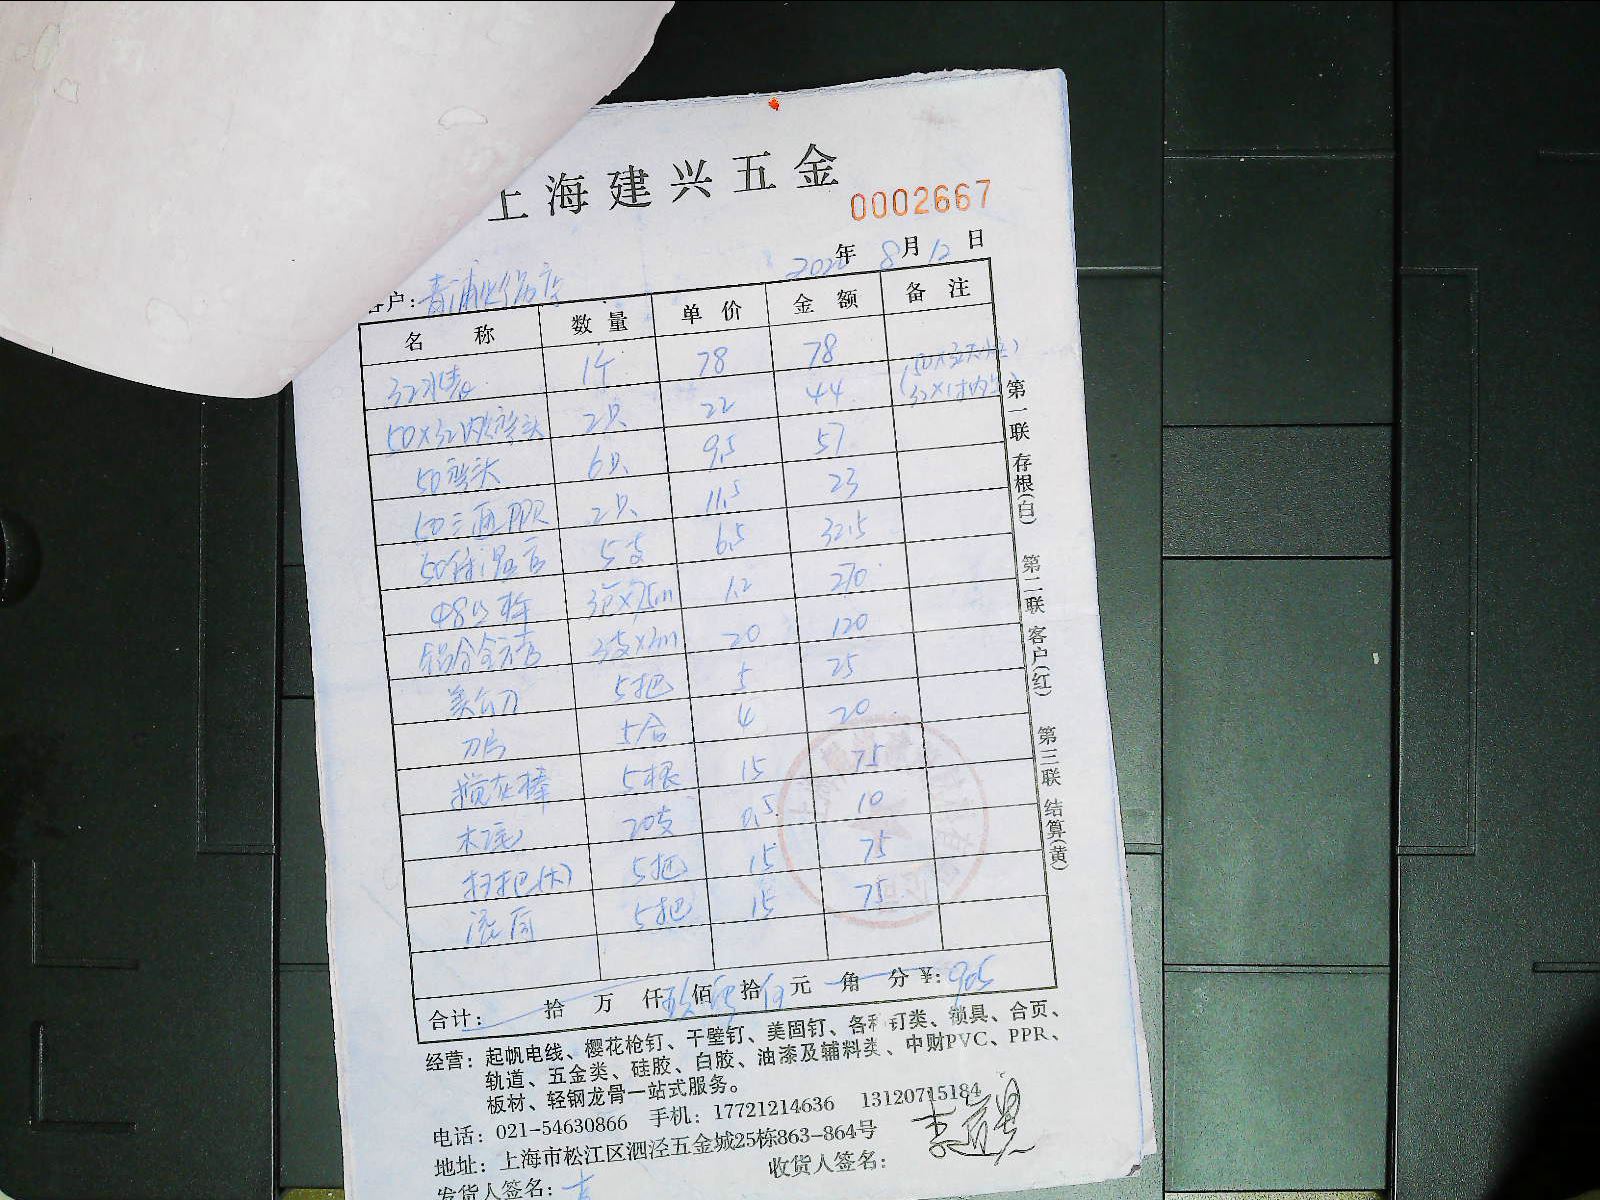 上海建兴五金
0002667
年 8月12日
客户:青浦
名 称 数 量 单 价 金 额 备 注
32水表 1个 78 78
50×32内丝弯头 2只 22 44
50弯头 6只 9.5 57
50三通PPR 2只 11.5 23
5支 6.5 32.5
1.2 270
铝合金 20 120
美工刀 5把 5 25
刀片 5合 4 20
搅灰棒 5根 15 75
20支 0.5 10
扫把(大) 5把 15 75
5把 15 75
合计: 拾 万 仟 玖 佰 零 拾 伍 元 角 分 ¥:905
第一联 存根(白) 第二联 客户(红) 第三联 结算(黄)
经营:起帆电线、樱花枪钉、干壁钉、美固钉、各种钉类、锁具、合页、
轨道、五金类、硅胶、白胶、油漆及辅料类、中财PVC、PPR、
板材、轻钢龙骨一站式服务。
电话:021-54630866 手机:17721214636 13120715184
地址:上海市松江区泗泾五金城25栋863-864号
发货人签名: 收货人签名: